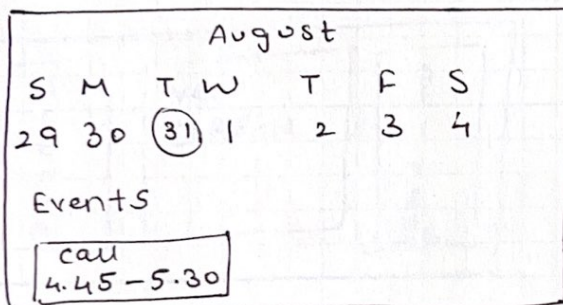 August
S M T W T F S
29 30 31 1 2 3 4
Events
call
4.45-5.30